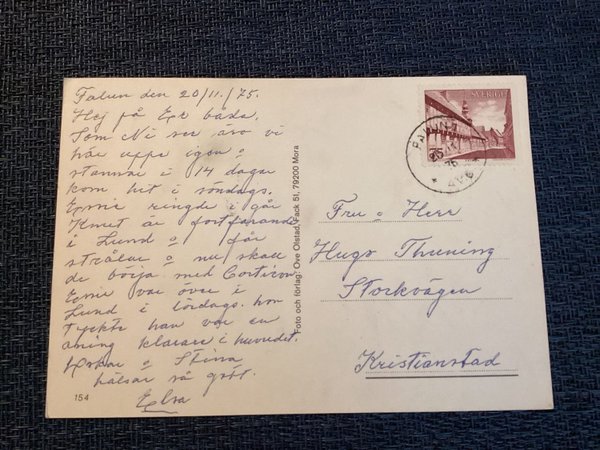 Falun den 20/11./75.
Hej på Er båda,
Som Ni ser äro vi
här uppe igen o
stannar i 14 dagar
kom hit i söndags.
Ernie ringde i går
Knut är fortfarande
i Lund o får
strålar o nu skall
de börja med Cortison
Ernie var över i
Lund i lördags. hon
tyckte han var en
aning klarare i huvudet.
Oskar o Stina
hälsar så gott.
Elva
154
Foto och förlag: Ove Olstad, Fack 51, 79200 Mora
SVERIGE
75
Fru o Herr
Hugo Thuning
Storkvägen
Kristianstad